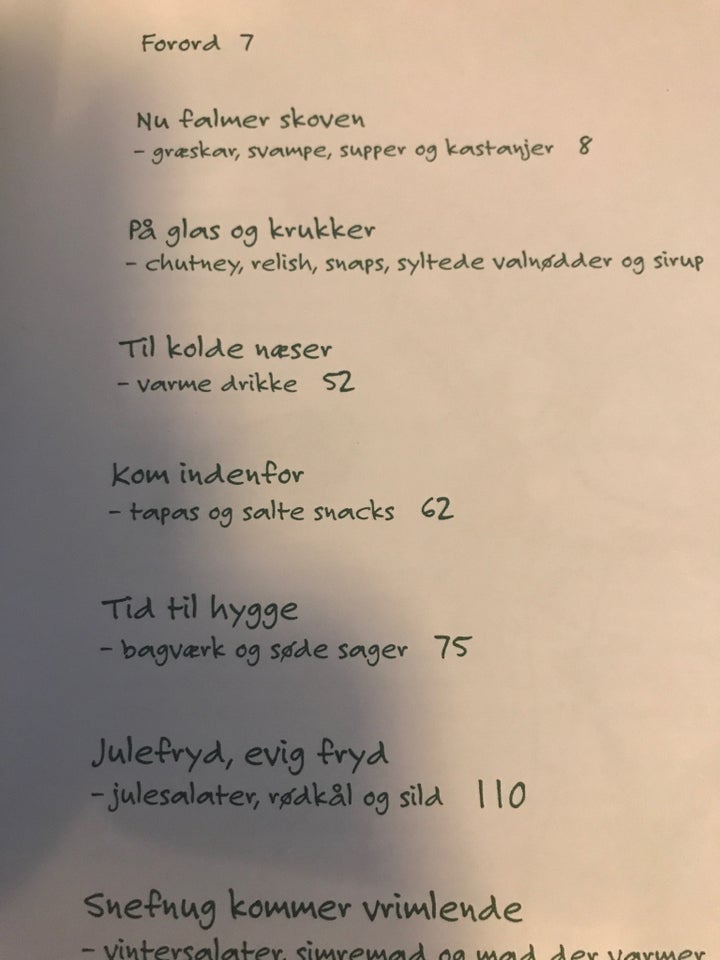 Forord 7
Nu falmer skoven
- græskar, svampe, supper og kastanjer 8
På glas og krukker
- chutney, relish, snaps, syltede valnødder og sirup
Til kolde næser
- varme drikke 52
Kom indenfor
- tapas og salte snacks 62
Tid til hygge
- bagværk og søde sager 75
Julefryd, evig fryd
- julesalater, rødkål og sild 110
Snefnug kommer vrimlende
- vintersalater, simremad og mad der varmer